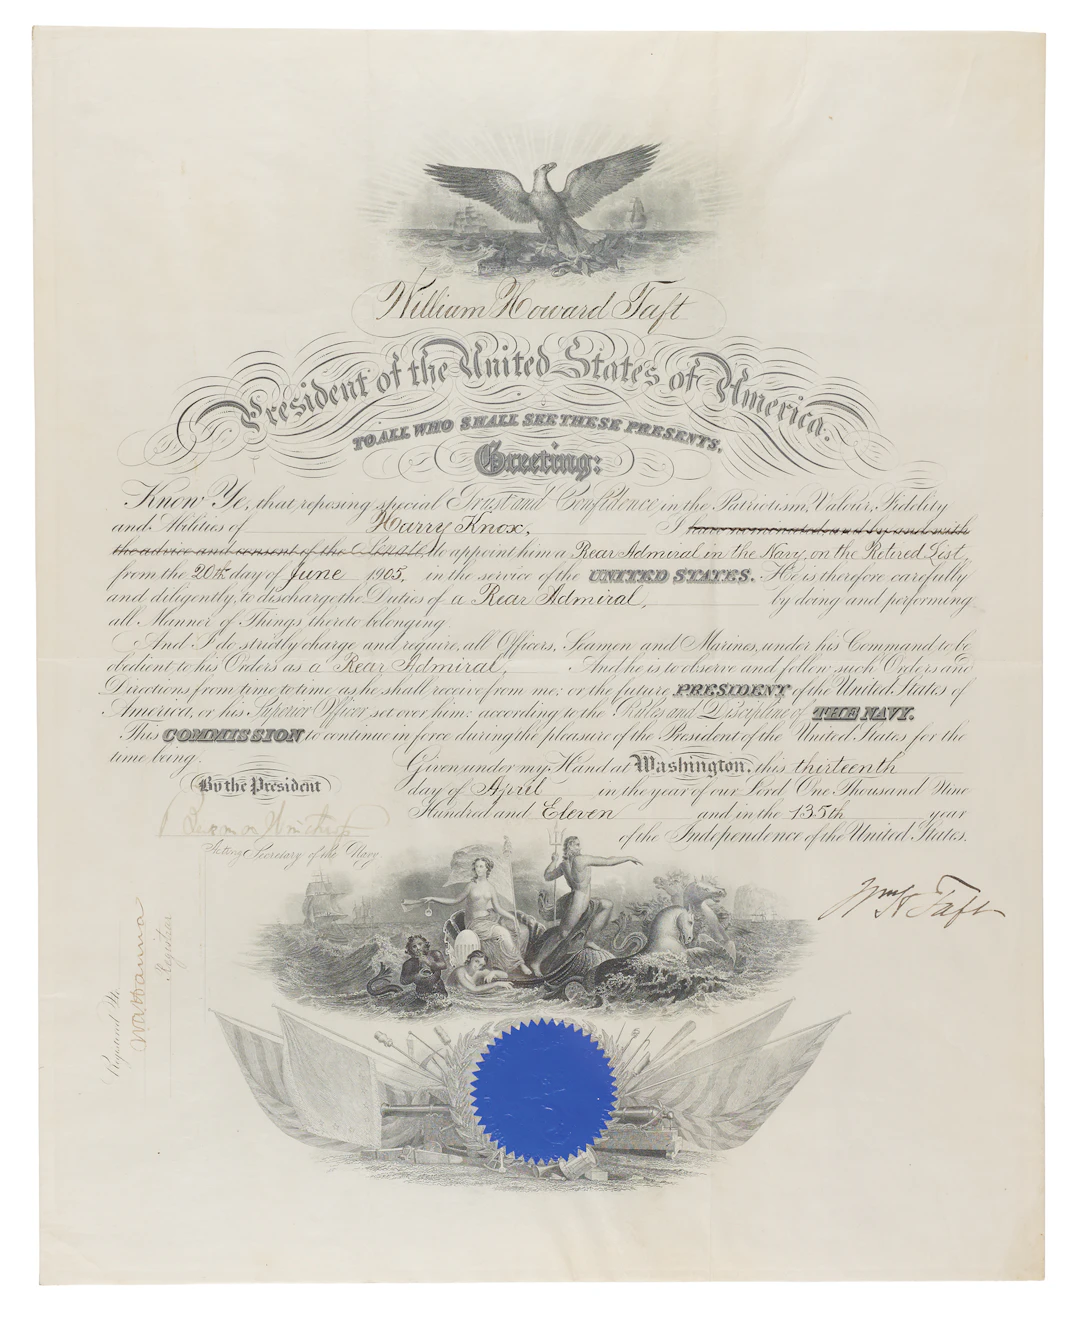 William Howard Taft
President of the United States of America.
TO ALL WHO SHALL SEE THESE PRESENTS,
Greeting:
Know Ye, that reposing special Trust and Confidence in the Patriotism, Valour, Fidelity
and Abilities of Harry Knox, I have nominated and by and with
the advice and consent of the Senate do appoint him a Rear Admiral in the Navy, on the Retired List,
from the 20th day of June 1905, in the service of the UNITED STATES. He is therefore carefully
and diligently to discharge the Duties of a Rear Admiral, by doing and performing
all Manner of Things thereto belonging.
And I do strictly charge and require all Officers, Seamen and Marines, under his Command to be
obedient to his Orders as a Rear Admiral, And he is to observe and follow such Orders and
Directions from time to time as he shall receive from me, or the future PRESIDENT of the United States of
America, or his Superior Officer set over him, according to the Rules and Discipline of THE NAVY.
This COMMISSION to continue in force during the pleasure of the President of the United States for the
time being.
Given under my Hand at Washington, this thirteenth
day of April in the year of our Lord One Thousand Nine
Hundred and Eleven and in the 135th year
of the Independence of the United States.
By the President
Beekman Winthrop
Acting Secretary of the Navy
Wm H Taft
Registered No.
Register